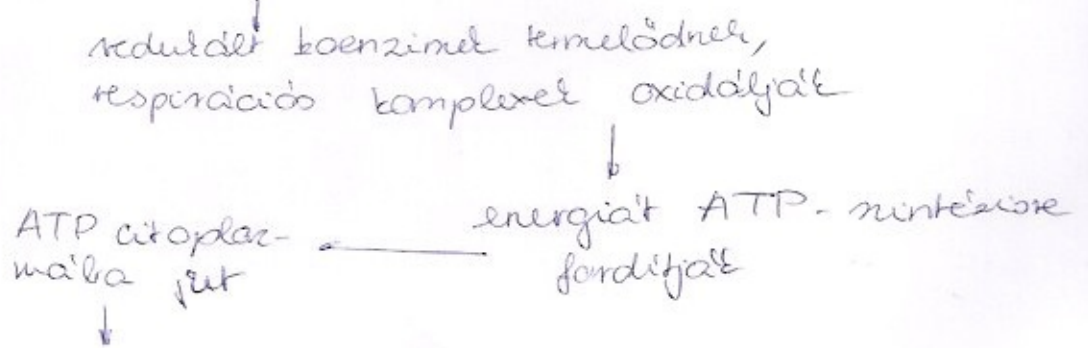 redukált koenzimek termelődnek,
respirációs komplexek oxidálják
energiát ATP-szintézisre
fordítják
ATP citoplaz-
mába jut